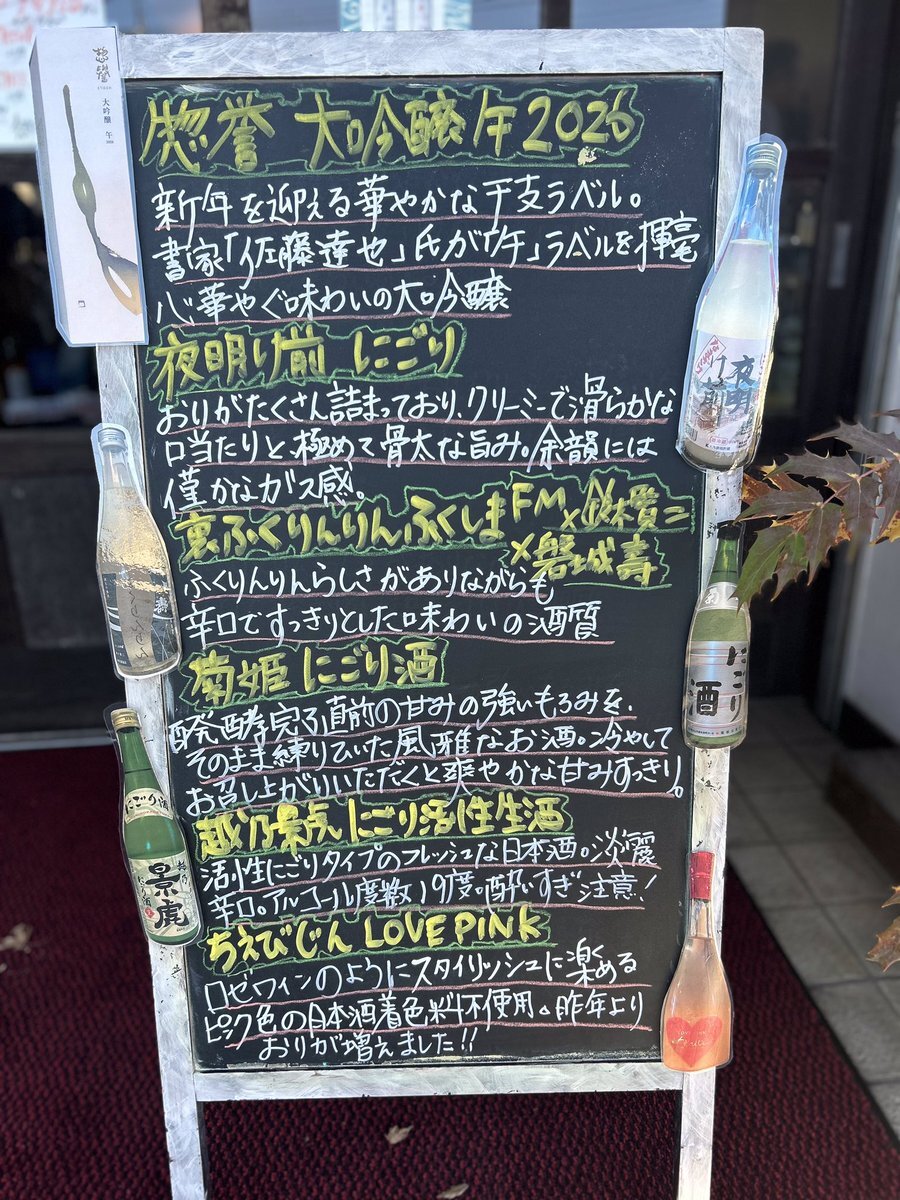 惣誉 大吟醸 午2026
新年を迎える華やかな干支ラベル。
書家「佐藤達也」氏が「午」ラベルを揮毫
心華やぐ味わいの大吟醸
夜明け前 にごり
おりがたくさん詰まっており、クリーミーで滑らかな
口当たりと、極めて骨太な旨み。余韻には
僅かなガス感。
裏ふくりんりん ふくしまFM×鈴木賢二
×磐城壽
ふくりんりんらしさがありながらも
辛口ですっきりとした味わいの酒質
菊姫 にごり酒
醗酵完了直前の甘みの強いもろみを、
そのまま練りていた風雅なお酒。冷やして
お召し上がりいただくと爽やかな甘みすっきり。
越乃景虎 にごり活性生酒
活性にごりタイプのフレッシュな日本酒。淡麗
辛口。アルコール度数19度。酔いすぎ注意!
ちえびじん LOVE PINK
ロゼワインのようにスタイリッシュに楽める
ピンク色の日本酒着色料不使用。昨年より
おりが増えました!!
惣誉
大吟醸 午
夜明け前
にごり酒
にごり酒
景虎
LOVE PINK